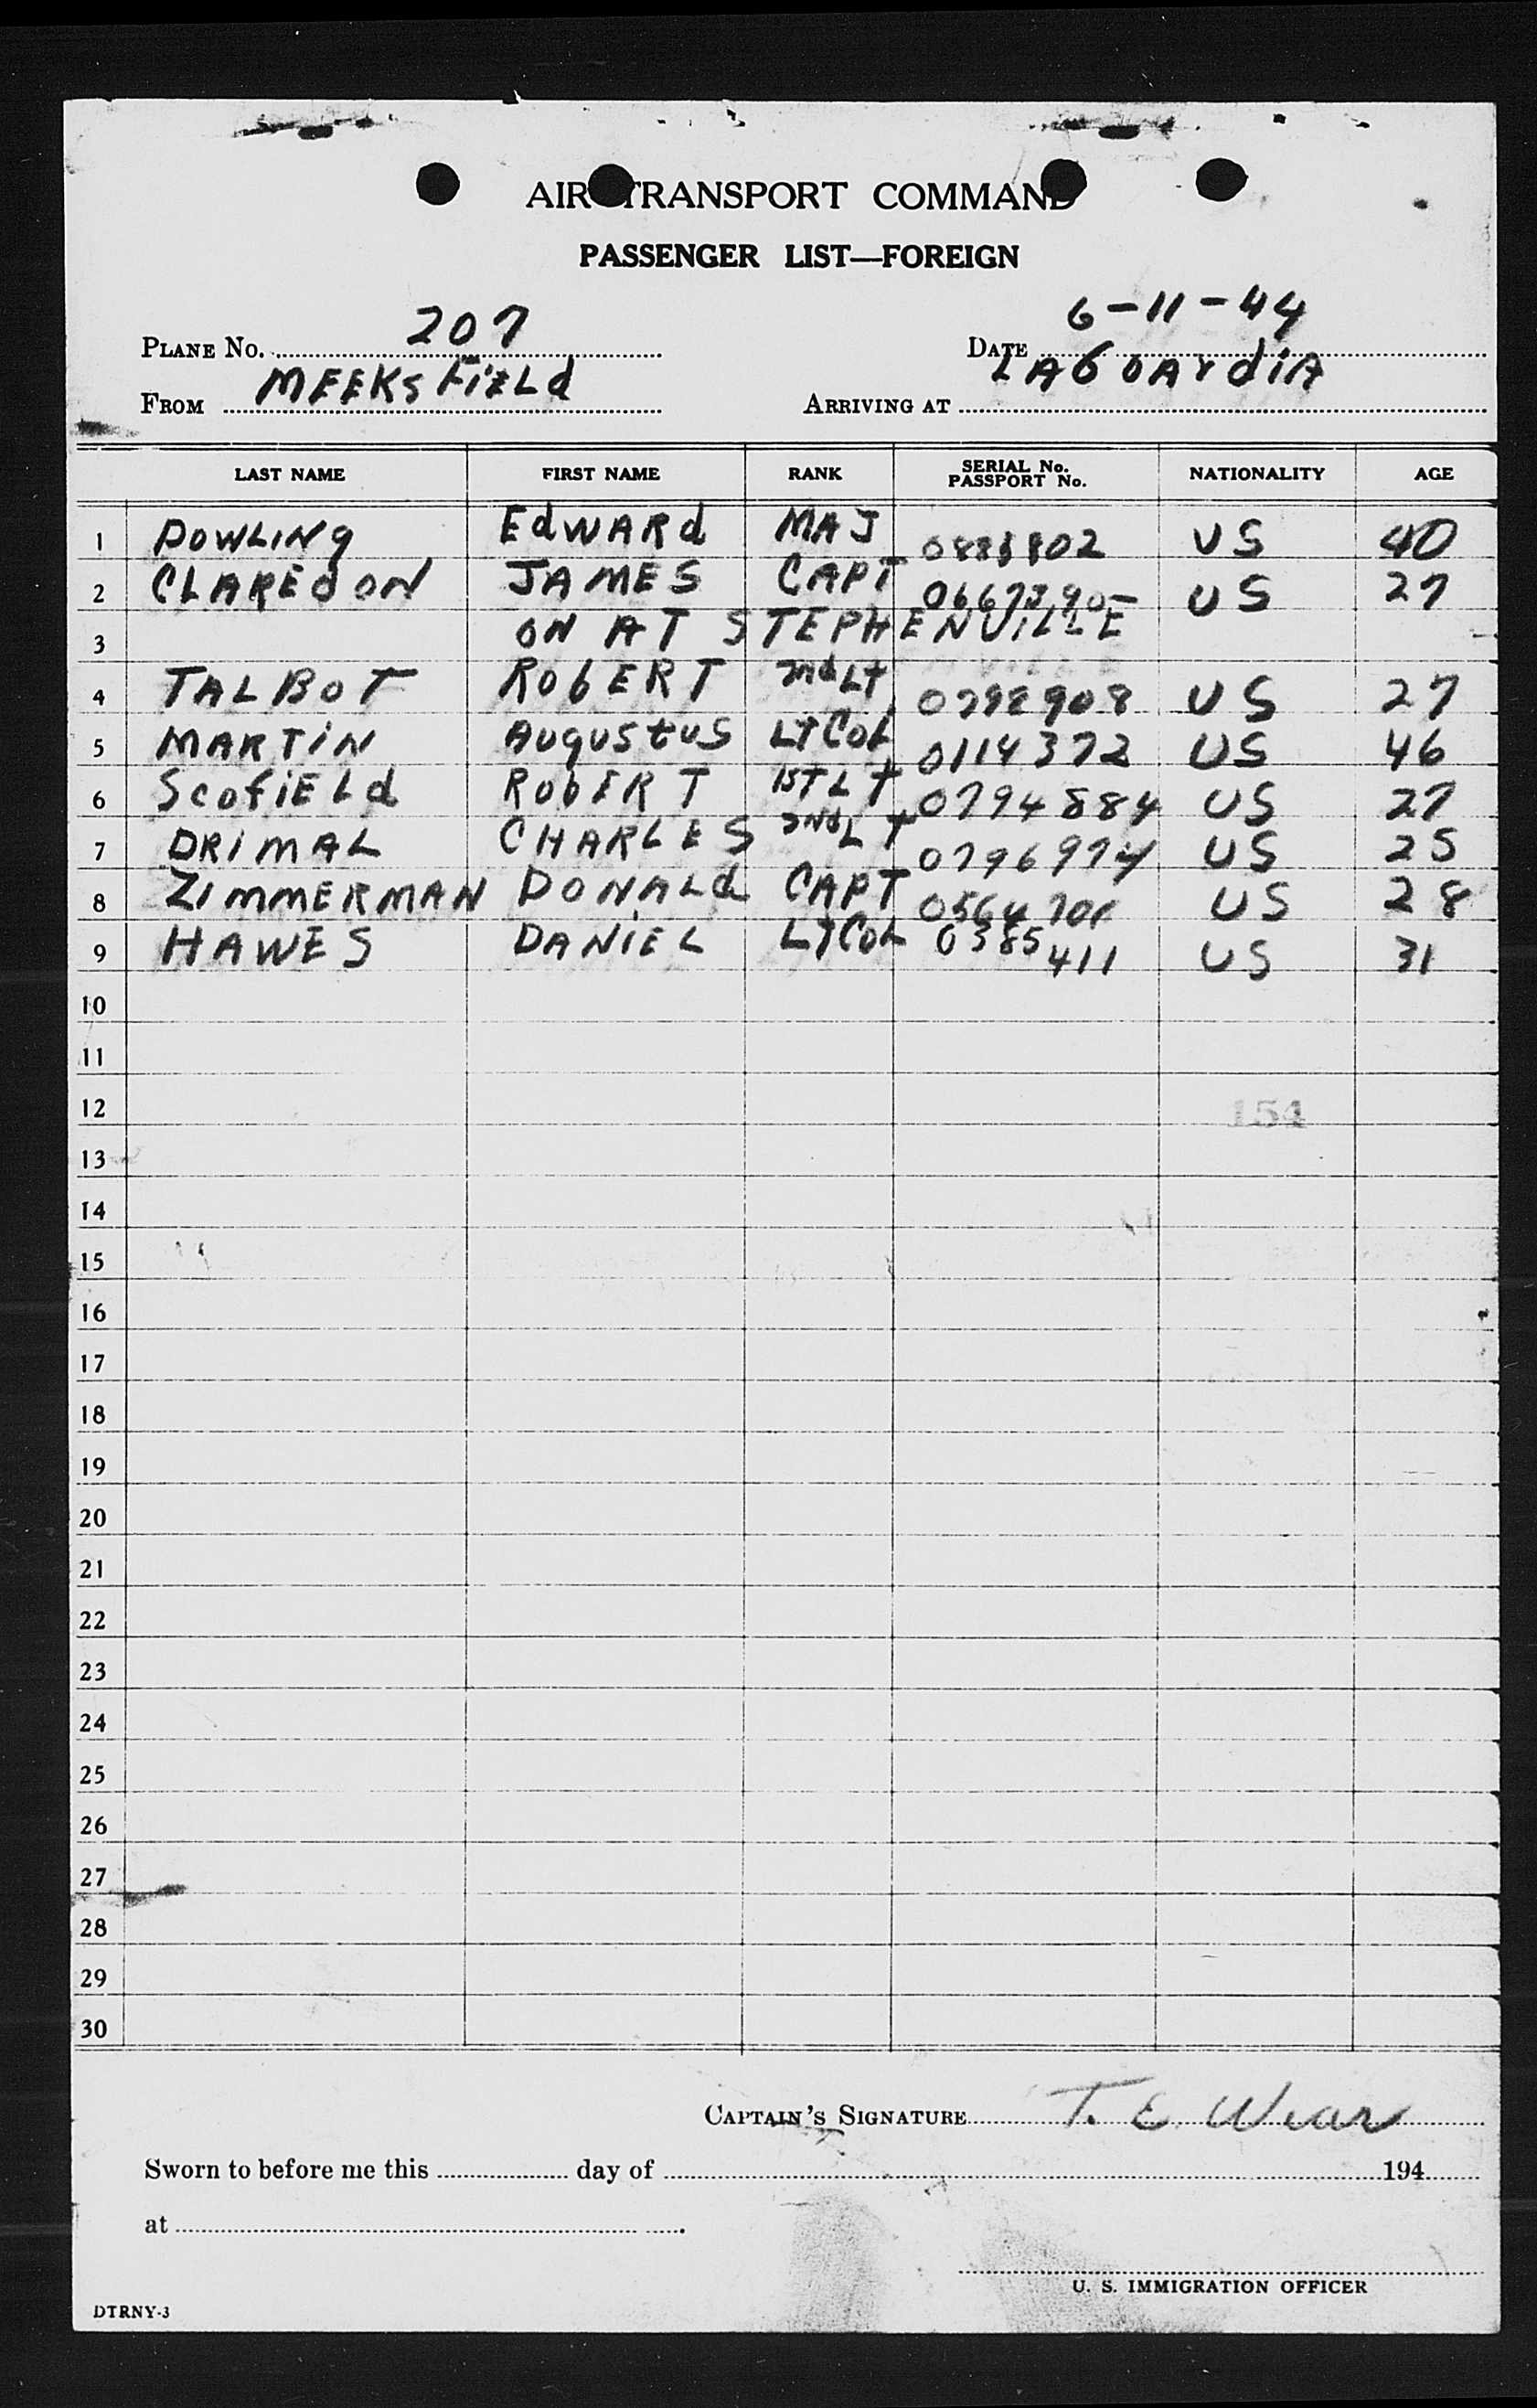 AIR TRANSPORT COMMAND
PASSENGER LIST—FOREIGN
PLANE No. 207 DATE 6-11-44
FROM MEEKS FiELd ARRIVING AT LAGUArdiA
LAST NAME FIRST NAME RANK SERIAL No. PASSPORT No. NATIONALITY AGE
1 DOWLiNg EdWARd MAJ US 40
2 CLAREdON JAMES CAPT US 27
3 ON AT STEPHENViLLE
4 TALBOT RObERT 2ndLt 0798908 US 27
5 MARTiN AUgUStUS LTCOL 0114372 US 46
6 ScofiELd RObERT 1STLT 0794884 US 27
7 DRiMAL CHARLES 2NdLT 0796974 US 25
8 ZIMMERMAN DONALd CAPT US 28
9 HAWES DANiEL LTCOL 0385411 US 31
10
11
12 154
13
14
15
16
17
18
19
20
21
22
23
24
25
26
27
28
29
30
CAPTAIN'S SIGNATURE T. E. Wear
Sworn to before me this day of 194
at
U. S. IMMIGRATION OFFICER
DTRNY-3